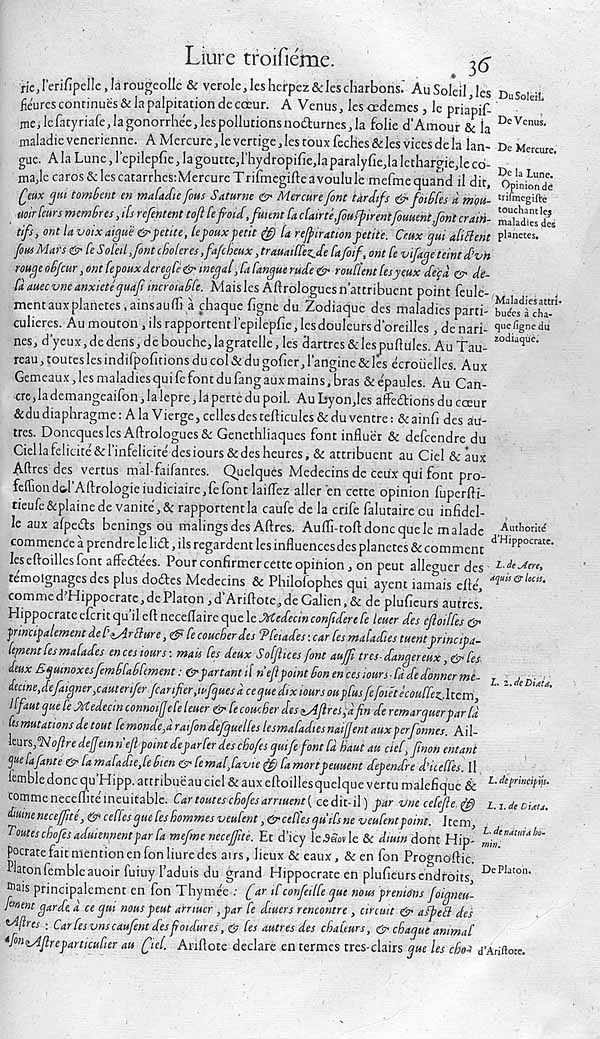 Liure troisiéme.
36
rie, l'erisipelle, la rougeolle & verole, les herpez & les charbons. Au Soleil, les
fiéures continuës & la palpitation de cœur. A Venus, les œdemes, le priapis-
me, le satyriase, la gonorrhée, les pollutions nocturnes, la folie d'Amour & la
maladie venerienne. A Mercure, le vertige, les toux seches & les vices de la lan-
gue. A la Lune, l'epilepsie, la goutte, l'hydropisie, la paralysie, la lethargie, le co-
ma, le caros & les catarrhes: Mercure Trismegiste a voulu le mesme quand il dit,
Ceux qui tombent en maladie sous Saturne & Mercure sont tardifs & foibles à mou-
uoir leurs membres, ils resentent tost le froid, fuient la clairté, souspirent souuent, sont crain-
tifs, ont la voix aiguë & petite, le poux petit & la respiration petite. Ceux qui alictent
sous Mars & le Soleil, sont choleres, fascheux, trauaillez de la soif, ont le visage teint d'vn
rouge obscur, ont le poux dereglé & inegal, la langue rude & roullent les yeux deçà & de-
là auec vne anxieté quasi incroiable. Mais les Astrologues n'attribuent point seule-
ment aux planetes, ains aussi à chaque signe du Zodiaque des maladies parti-
culieres. Au mouton, ils rapportent l'epilepsie, les douleurs d'oreilles, de nari-
nes, d'yeux, de dens, de bouche, la gratelle, les dartres & les pustules. Au Tau-
reau, toutes les indispositions du col & du gosier, l'angine & les écroüelles. Aux
Gemeaux, les maladies qui se font du sang aux mains, bras & épaules. Au Can-
cre, la demangeaison, la lepre, la perte du poil. Au Lyon, les affections du cœur
& du diaphragme: A la Vierge, celles des testicules & du ventre: & ainsi des au-
tres. Doncques les Astrologues & Genethliaques font influër & descendre du
Ciel la felicité & l'infelicité des iours & des heures, & attribuent au Ciel & aux
Astres des vertus mal-faisantes. Quelques Medecins de ceux qui font pro-
fession de l'Astrologie iudiciaire, se sont laissez aller en cette opinion supersti-
tieuse & plaine de vanité, & rapportent la cause de la crise salutaire ou infidel-
le aux aspects benings ou malings des Astres. Aussi-tost donc que le malade
commence à prendre le lict, ils regardent les influences des planetes & comment
les estoilles sont affectées. Pour confirmer cette opinion, on peut alleguer des
témoignages des plus doctes Medecins & Philosophes qui ayent iamais esté,
comme d'Hippocrate, de Platon, d'Aristote, de Galien, & de plusieurs autres.
Hippocrate escrit qu'il est necessaire que le Medecin considere le leuer des estoilles &
principalement de l'Arcture, & le coucher des Pleiades: car les maladies tuent principa-
lement les malades en ces iours: mais les deux Solstices sont aussi tres-dangereux, & les
deux Equinoxes semblablement: & partant il n'est point bon en ces iours-là de donner me-
decine, de saigner, cauteriser, scarifier, iusques à ce que dix iours ou plus se soiēt écoullez. Item,
Il faut que le Medecin connoisse le leuer & le coucher des Astres, à fin de remarquer par là
les mutations de tout le monde, à raison desquelles les maladies naissent aux personnes. Ail-
leurs, Nostre dessein n'est point de parler des choses qui se font là haut au ciel, sinon entant
que la santé & la maladie, le bien & le mal, la vie & la mort peuuent dependre d'icelles. Il
semble donc qu'Hipp. attribuë au ciel & aux estoilles quelque vertu malefique &
comme necessité ineuitable. Car toutes choses arriuent (ce dit-il) par vne celeste &
diuine necessité, & celles que les hommes veulent, & celles qu'ils ne veulent point. Item,
Toutes choses aduiennent par la mesme necessité. Et d'icy le θεῖον le & diuin dont Hip-
pocrate fait mention en son liure des airs, lieux & eaux, & en son Prognostic.
Platon semble auoir suiuy l'aduis du grand Hippocrate en plusieurs endroits,
mais principalement en son Thymée: Car il conseille que nous prenions soigneu-
sement garde à ce qui nous peut arriuer, par le diuers rencontre, circuit & aspect des
Astres: Car les vns causent des froidures, & les autres des chaleurs, & chaque animal
a son Astre particulier au Ciel. Aristote declare en termes tres-clairs que les cho-
Du Soleil.
De Venus.
De Mercure.
De la Lune.
Opinion de
trismegiste
touchant les
maladies des
planetes.
Maladies attri-
buées à cha-
que signe du
zodiaque.
Authorité
d'Hippocrate.
L. de Aere,
aquis & locis.
L. 2. de Diæta.
L. de principiis.
L. 1. de Diæta.
L. de natura ho-
min.
De Platon.
d'Aristote.